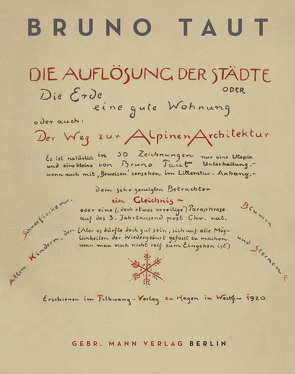 BRUNO TAUT
DIE AUFLÖSUNG DER STÄDTE
ODER
Die Erde
eine gute Wohnung
oder auch:
Der Weg zur Alpinen Architektur
Es ist natürlich in 30 Zeichnungen nur eine Utopie
und eine kleine von Bruno Taut Unterhaltung,-
wenn auch mit „Beweisen" versehen im Litteratur-Anhang.-
dem sehr geneigten Betrachter
ein Gleichnis-
oder eine (, doch etwas voreilige) Paraphrase
auf das 3. Jahrtausend post Chr. nat.
(Aber es dürfte doch gut sein, sich auf alle Mög-
lichkeiten der Wiedergeburt gefasst zu machen,
wenn man noch nicht reif zum Eingehen ist)
Allen Kindern, der
Schneeflocken,
Blumen
und Sterne
Erschienen im Folkwang-Verlag zu Hagen in Westfw 1920
GEBR. MANN VERLAG BERLIN